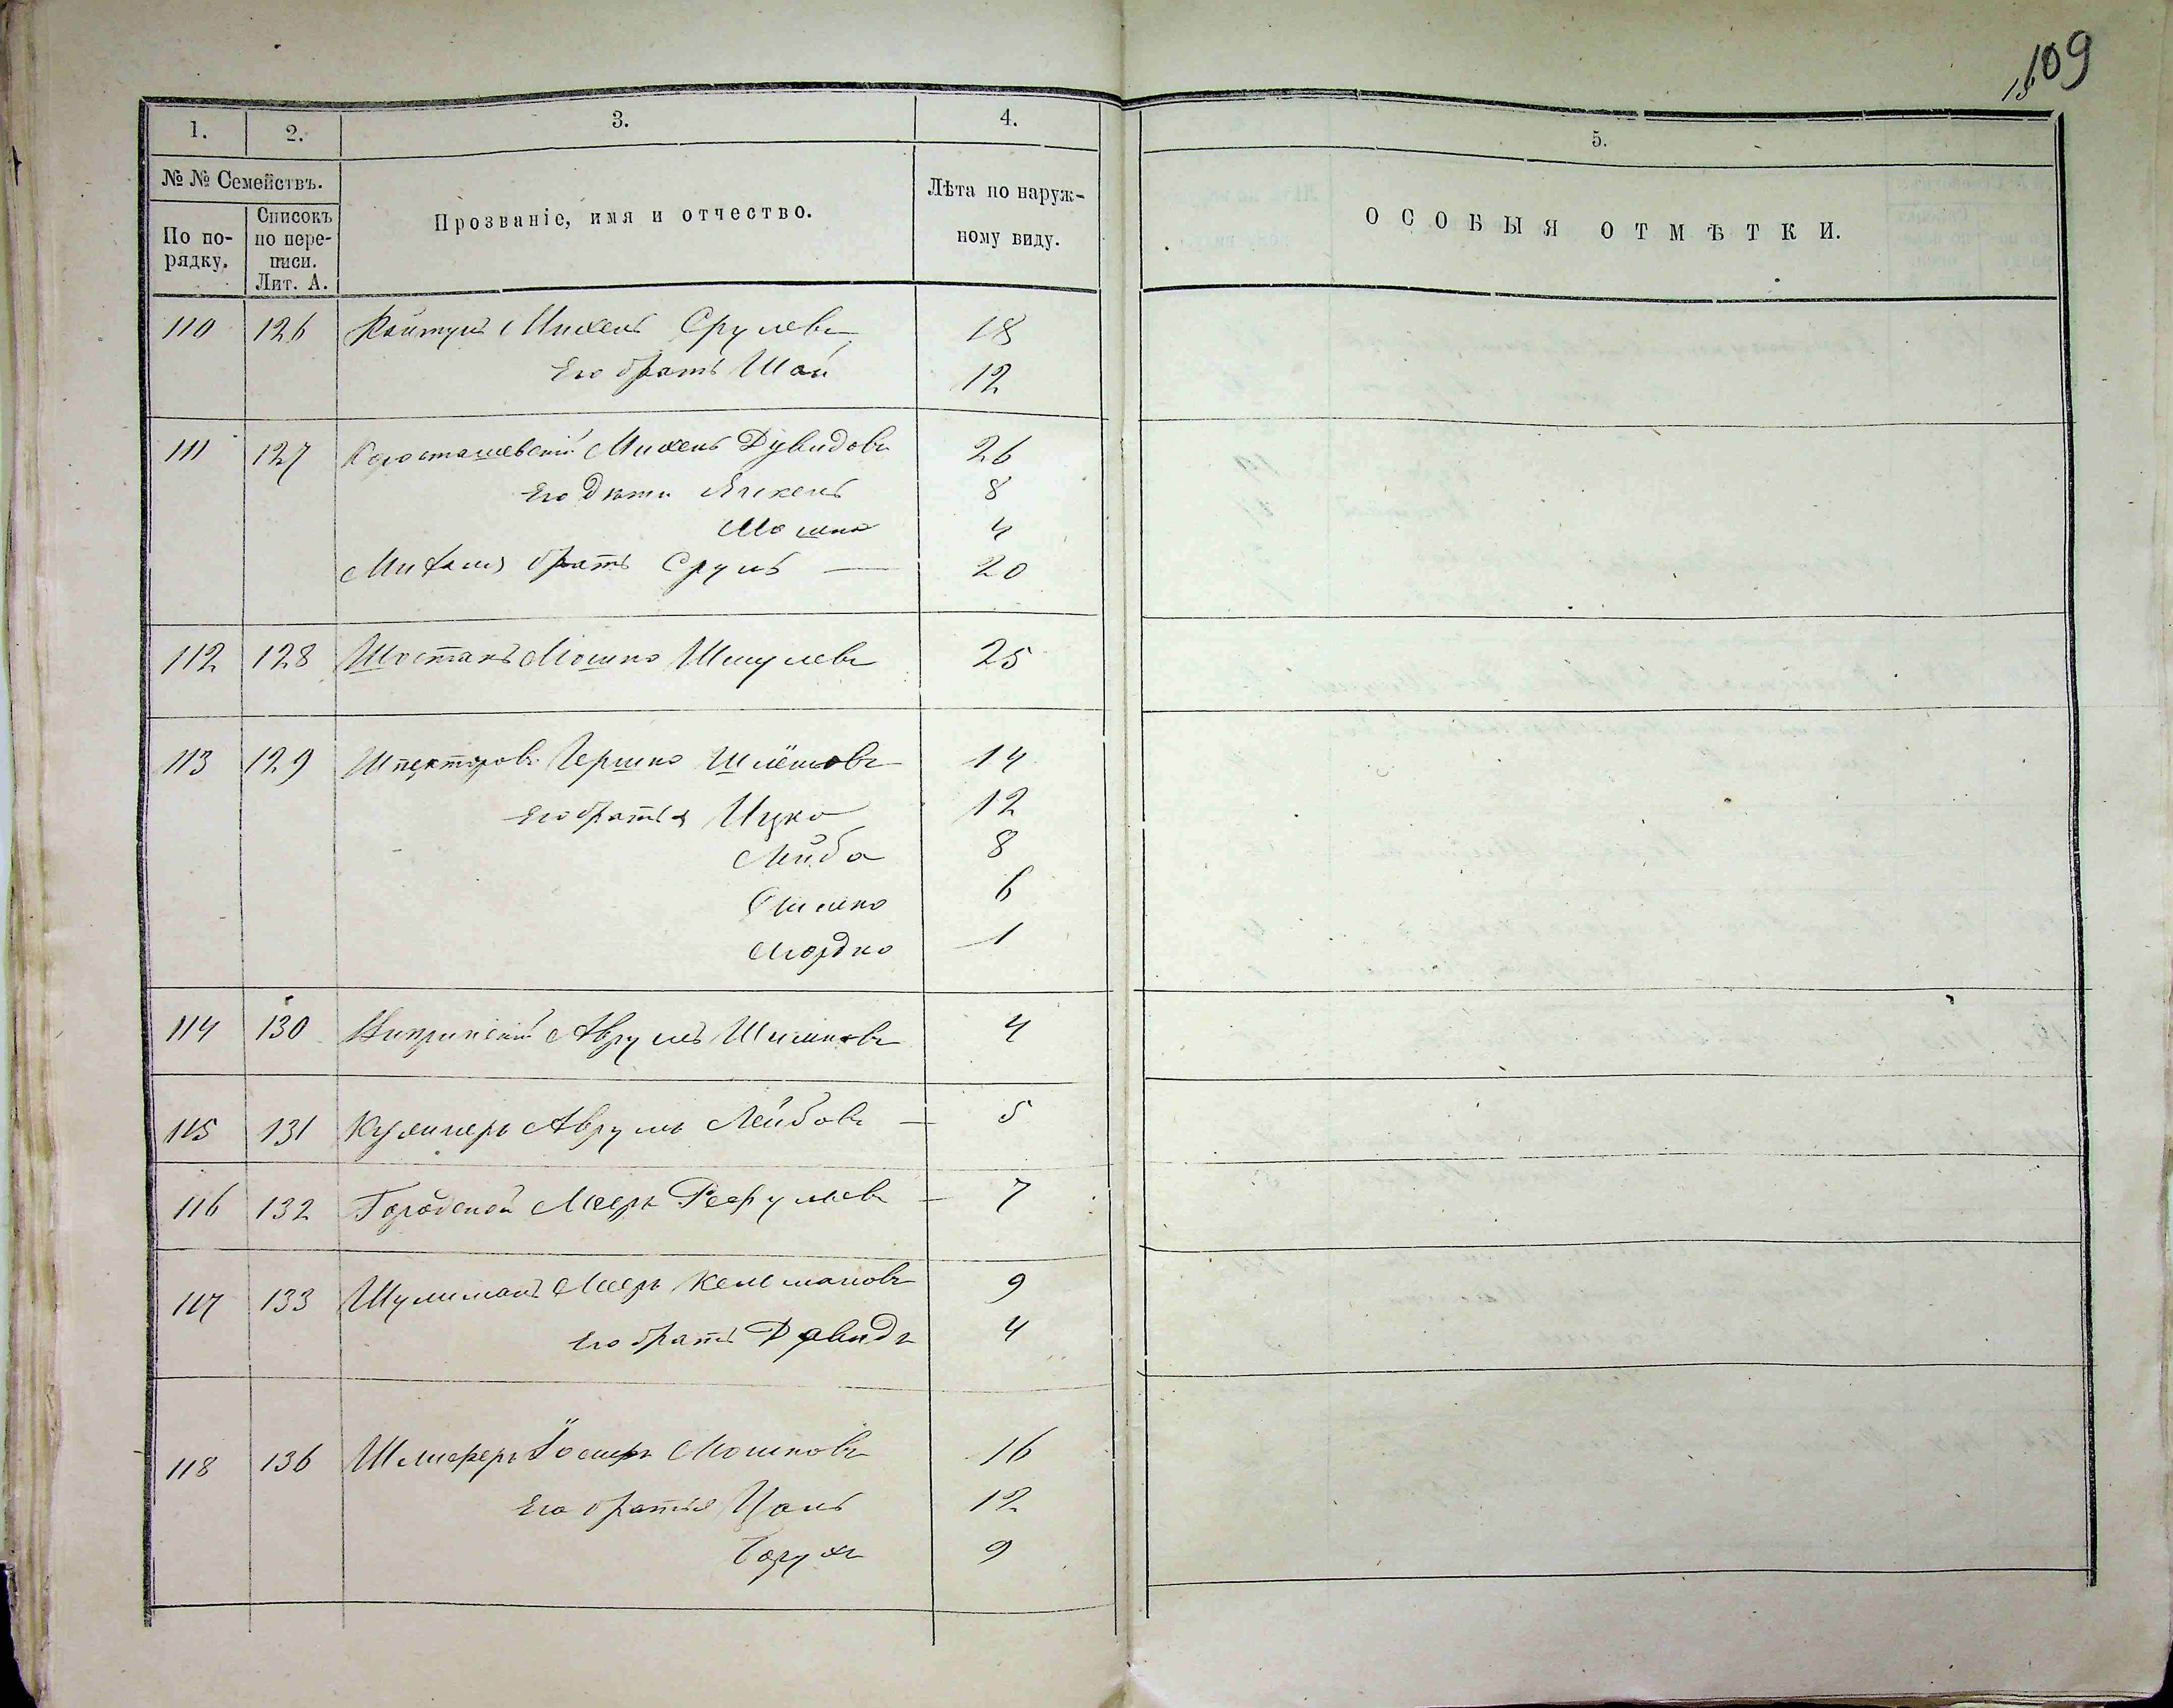 109
1. 2. 3. 4. 5.
№ № Семействъ.
По по-
рядку.
Списокъ
по пере-
писи.
Лит. А.
Прозваніе, имя и отчество.
Лѣта по наруж-
ному виду.
ОСОБЫЯ ОТМѢТКИ.
110 126 Койтунъ Михель Срулевъ 18
Его братъ Шая 12
111 127 Коросташевскій Михель Дувидовъ 26
Его дѣти Янкель 8
Мошко 4
Михеля братъ Сруль — 20
112 128 Шостакъ Мошко Шмулевъ 25
113 129 Шпекторовъ Гершко Шлёмовъ 14
Его братья Ицко 12
Лейба 8
Симко 6
Мордко 1
114 130 Аврумъ Шимковъ 4
115 131 Аврумъ Лейбовъ — 5
116 132 Городской Мееръ — 7
117 133 Шулиманъ Мееръ Кельмановъ 9
Его братъ Давидъ 4
118 136 Шлиферъ Мошковъ 16
Его братья Цаль 12
Борухъ 9